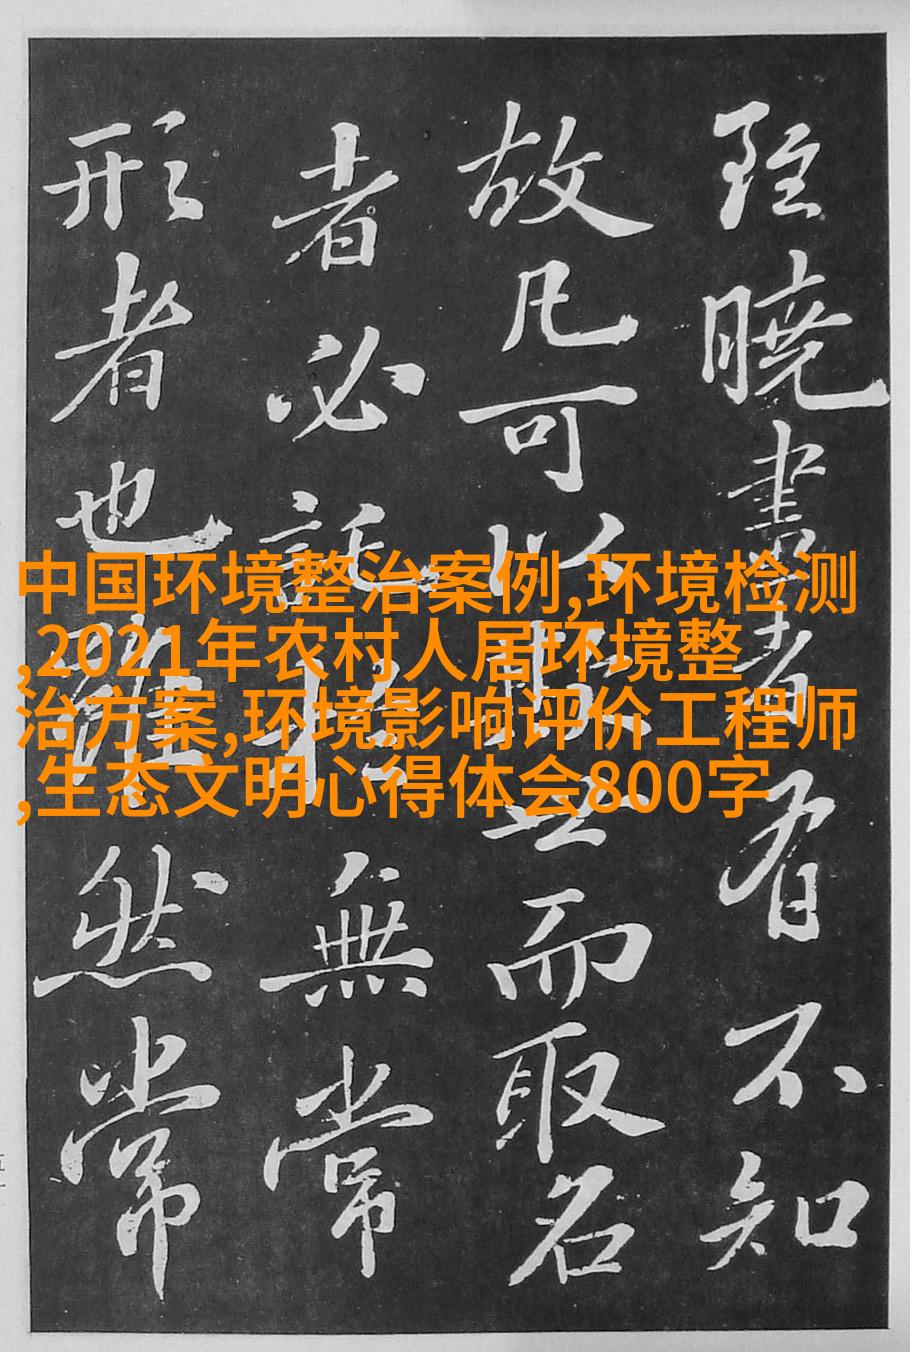 雖曉畫者有不知
故凡可以欺世而取名
者必託於無常
形者也雖然常
中国环境整治案例,环境检测
,2021年农村人居环境整
治方案,环境影响评价工程师
,生态文明心得体会800字